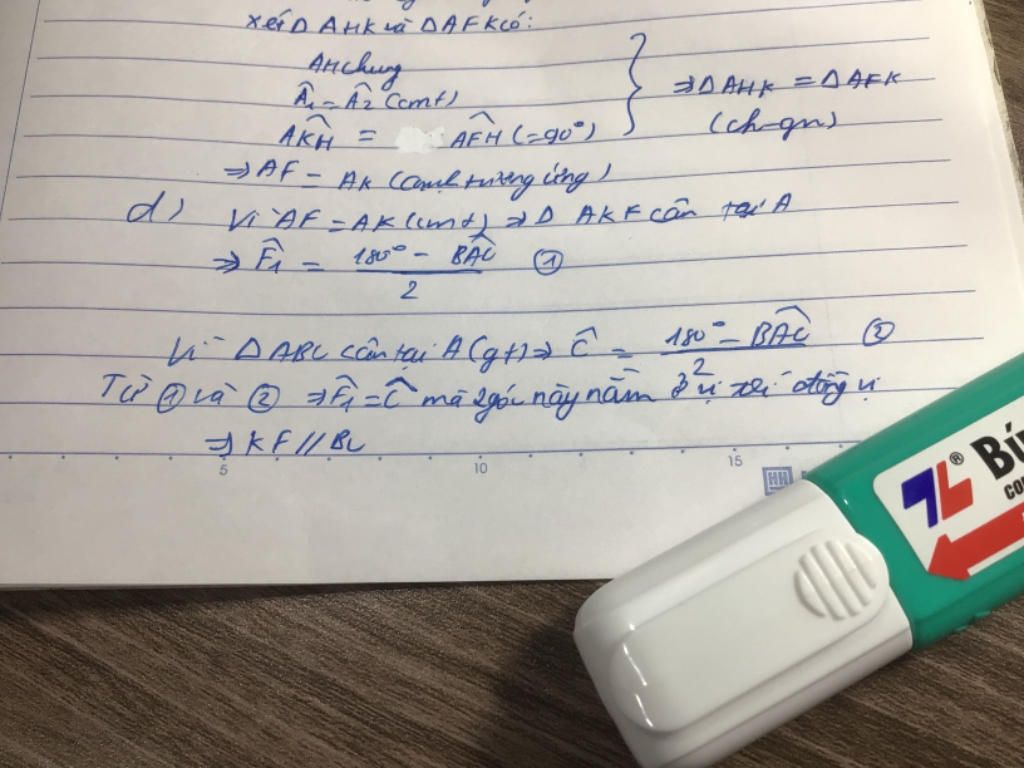 xét Δ AHK và Δ AFK có:
AH chung
Â₁ = Â₂ (cmt)
AK̂H = AF̂H (=90°)
⇒ Δ AHK = Δ AFK
(ch-gn)
⇒ AF = AK (cạnh tương ứng)
d) Vì AF = AK (cmt) ⇒ Δ AKF cân tại A
⇒ F̂₁ = (180° - BÂC)/2 ①
Vì Δ ABC cân tại A (gt) ⇒ Ĉ = (180° - BÂC)/2 ②
Từ ① và ② ⇒ F̂₁ = Ĉ mà 2 góc này nằm ở vị trí đồng vị
⇒ KF // BC
5 10 15
HH
TL® Bú
CO